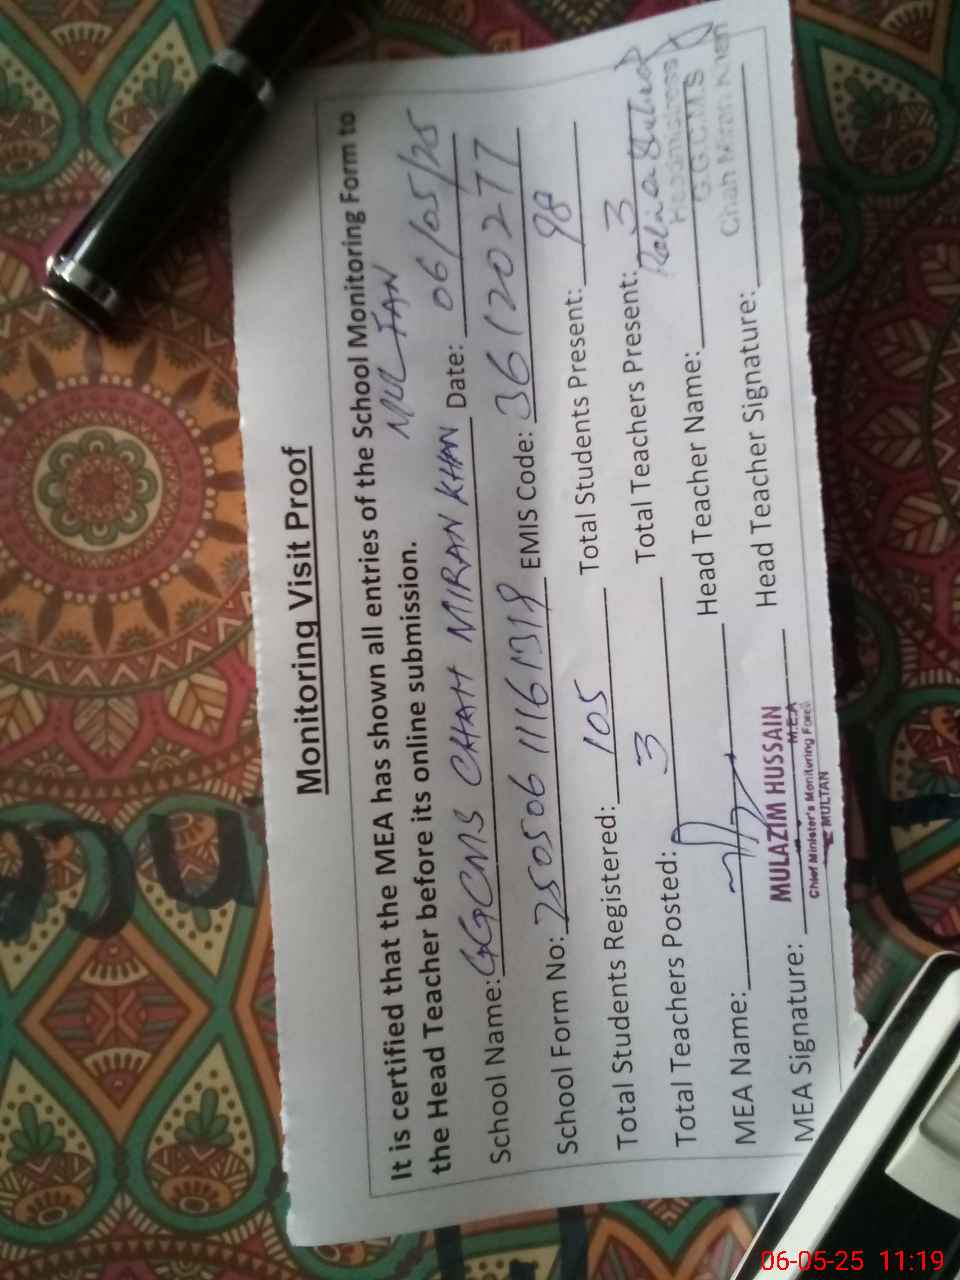 Monitoring Visit Proof
It is certified that the MEA has shown all entries of the School Monitoring Form to
the Head Teacher before its online submission.
MULTAN
School Name: GGCMS CHAH MIRAN KHAN Date: 06/05/25
School Form No: 250506 1116 1319 EMIS Code: 36120277
Total Students Registered: 105 Total Students Present: 98
Total Teachers Posted: 3 Total Teachers Present: 3
MEA Name: Head Teacher Name:
Headmistress
G.G.C.M.S
Chah Miran Khan
MEA Signature: Head Teacher Signature:
MULAZIM HUSSAIN
M.E.A
Chief Minister's Monitoring Force
MULTAN
06-05-25 11:19